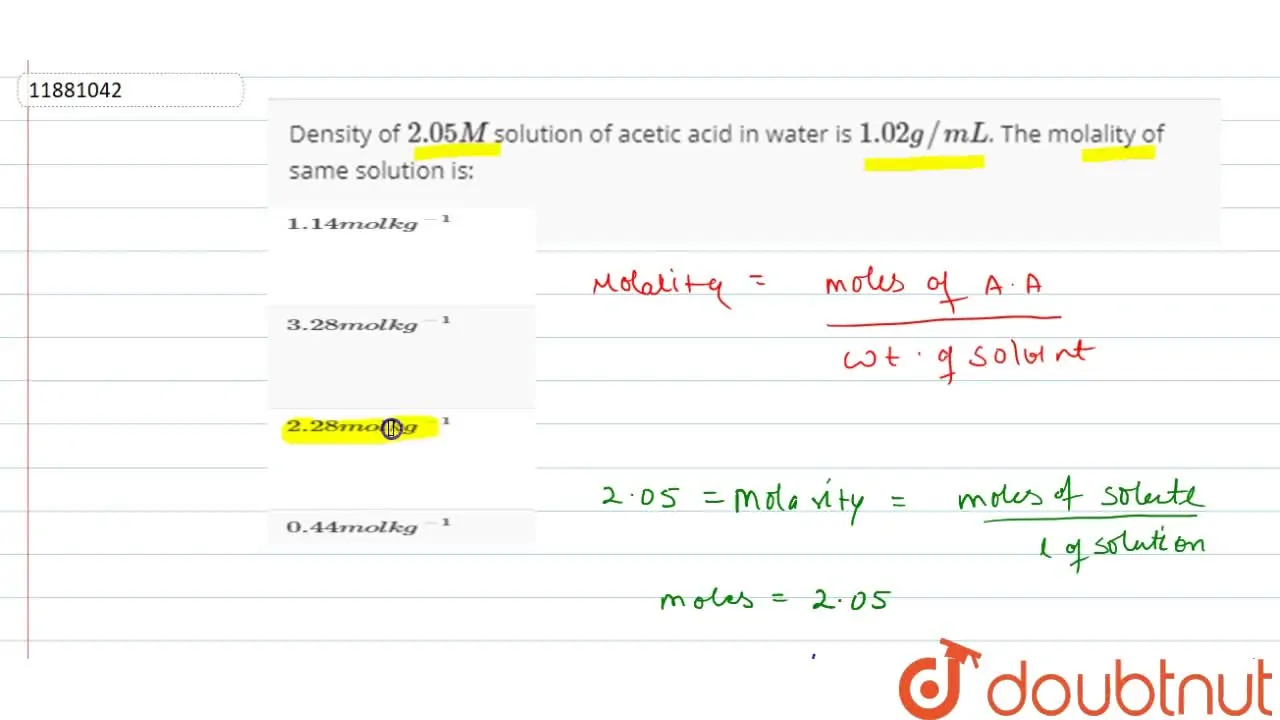 11881042
Density of 2.05M solution of acetic acid in water is 1.02g/mL. The molality of
same solution is:
1.14molkg⁻¹
3.28molkg⁻¹
2.28molkg⁻¹
0.44molkg⁻¹
Molality = moles of A.A
wt. of solvent
2.05 = Molarity = moles of solute
l of solution
moles = 2.05
doubtnut